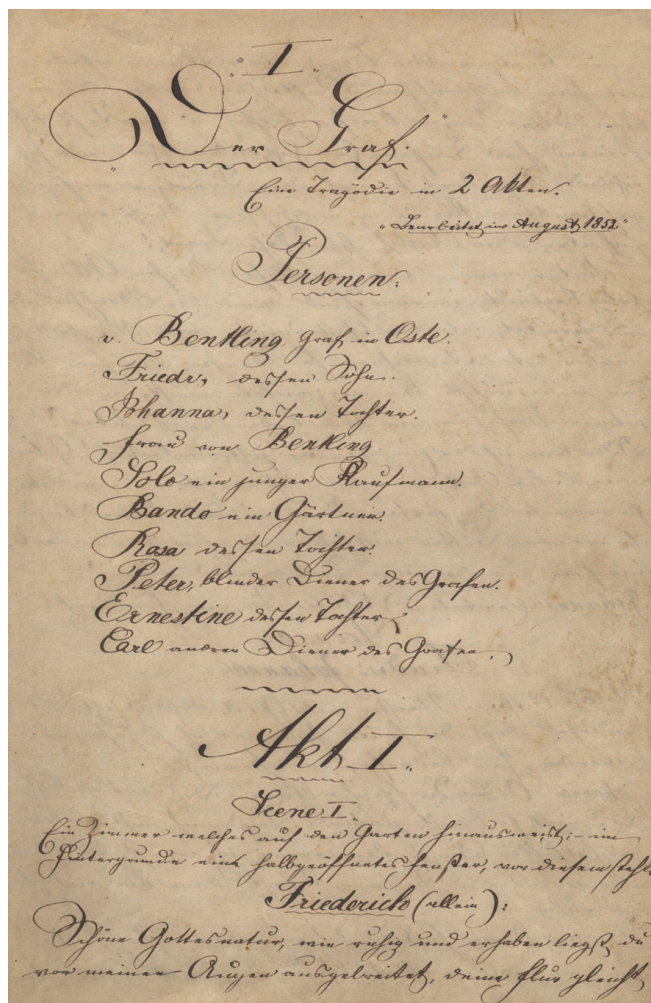 I.
Der Graf.
Eine Tragödie in 2 Akten.
"Bearbeitet im August 1852"
Personen:
v. Bentling Graf in Oste.
Friedr, dessen Sohn.
Johanna, dessen Tochter.
Frau von Bentling.
Solo ein junger Kaufmann.
Bando ein Gärtner.
Rosa dessen Tochter.
Peter, blinder Diener des Grafen.
Ernestine dessen Tochter
Carl anderer Diener des Grafen.
Akt I.
Scene I.
Ein Zimmer welches auf den Garten hinausweist; - im
Hintergrunde ein halbgeöffnetes Fenster, vor diesem steht.
Friederich (allein):
Schöne Gottesnatur, wie ruhig und erhaben liegst du
vor meinen Augen ausgebreitet, deine Flur gleicht